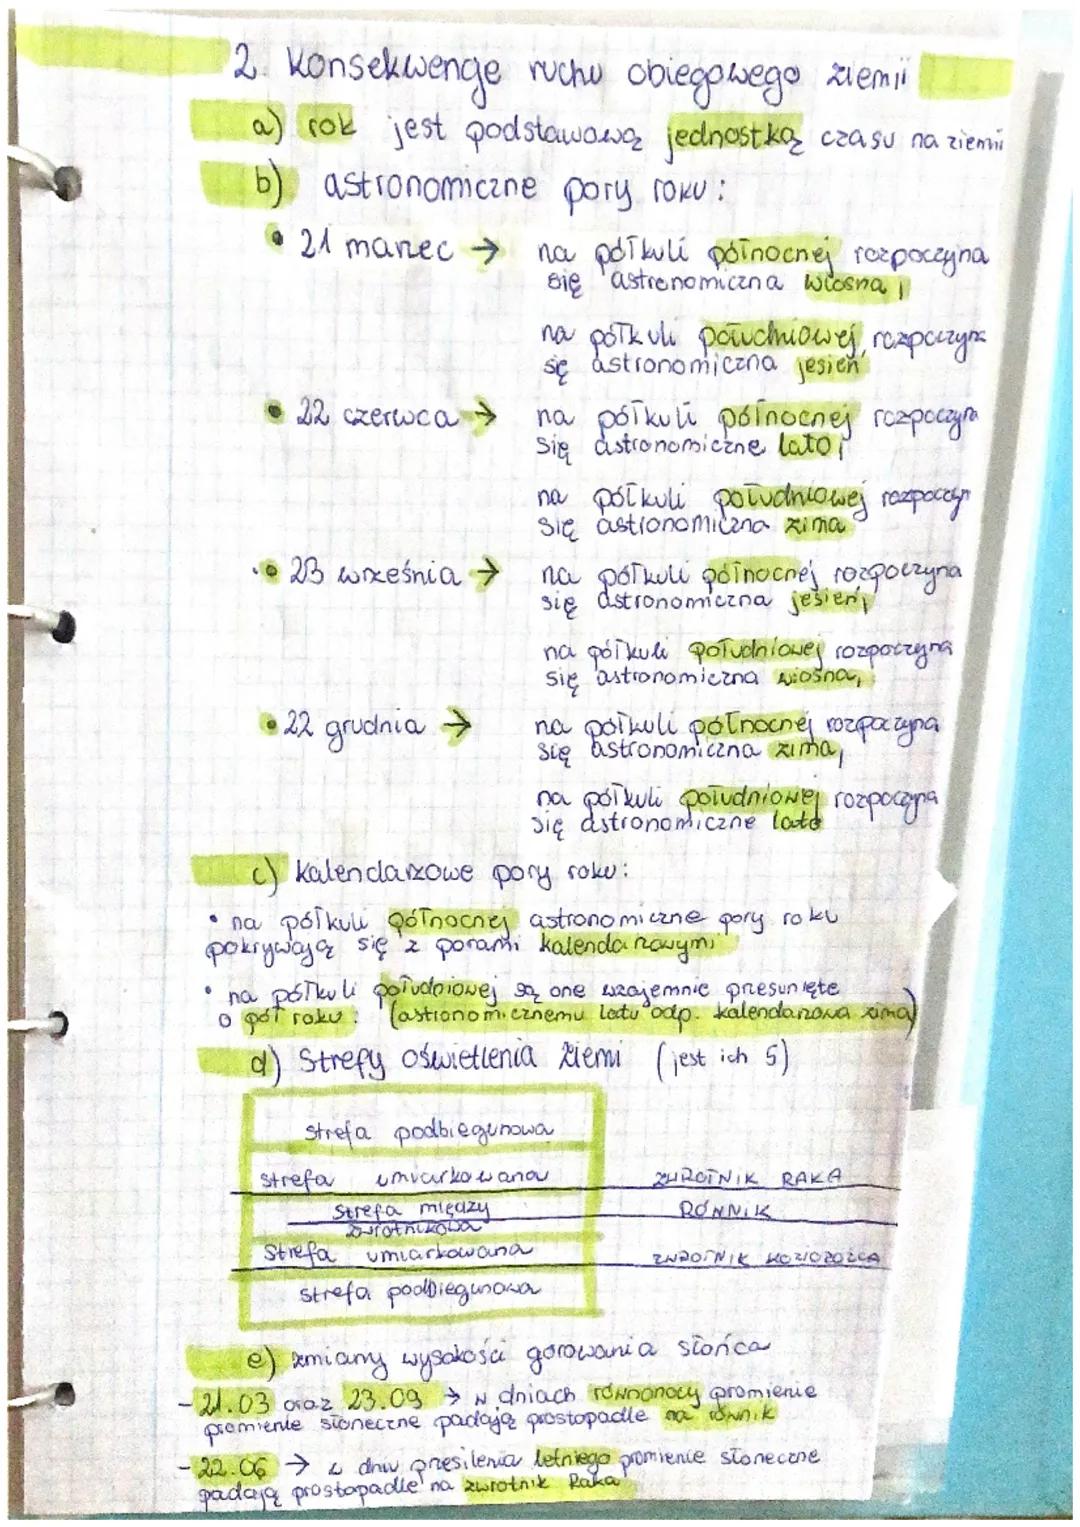 2. Konsekwencje ruchu obiegowego ziemii
a) rok jest podstawową jednostką czasu na ziemii
b) astronomiczne pory roku:
• 21 marzec → na półkuli północnej rozpoczyna
się astronomiczna wiosna,
na półkuli południowej, rozpoczyna
się astronomiczna jesień
• 22 czerwca → na półkuli północnej rozpoczyna
się astronomiczne lato,
na półkuli południowej rozpoczyn
się astronomiczna zima
• 23 września → na półkuli północnej rozpoczyna
się astronomiczna jesień,
na półkuli południowej rozpoczyna
się astronomiczna wiosna,
• 22 grudnia → na półkuli północnej rozpoczyna
się astronomiczna zima,
na półkuli południowej rozpoczyna
się astronomiczne lato
c) kalendarzowe pory roku:
• na półkuli północnej astronomiczne pory roku
pokrywają się z porami kalendarzowymi
• na półkuli południowej są one wzajemnie przesunięte
o pół roku. (astronomicznemu latu odp. kalendarzowa zima)
d) Strefy oświetlenia ziemi (jest ich 5)
strefa podbiegunowa
strefa umiarkowana ZWROTNIK RAKA
strefa między RÓWNIK
zwrotnikowa
strefa umiarkowana ZWROTNIK KOZIOROŻCA
strefa podbiegunowa
e) zmiany wysokości górowania słońca
- 21.03 oraz 23.09 → w dniach równonocy promienie
promienie słoneczne padają prostopadle na równik
- 22.06 → w dniu przesilenia letniego promienie słoneczne
padają prostopadle na zwrotnik Raka